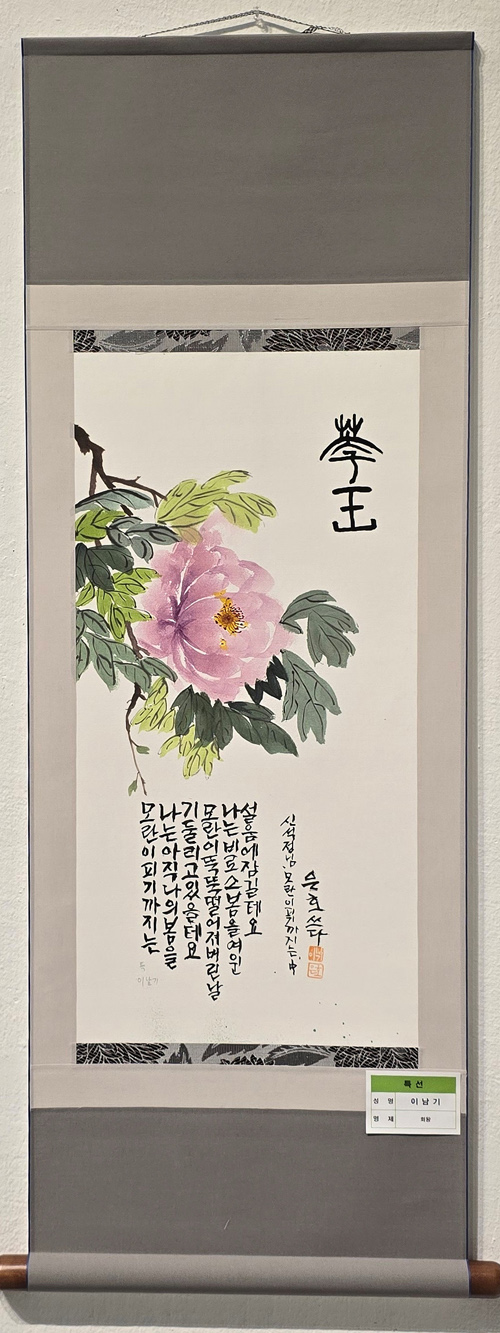 華王
모란이피기까지는
나는아직나의봄을
기둘리고있을테요
모란이뚝뚝떨어저버린날
나는비로소봄을여읜
설움에잠길테요
신석정님, 모란이피기까지는, 中
은호쓰다
특
이남기
특 선
성 명 이 남 기
명 제 화왕